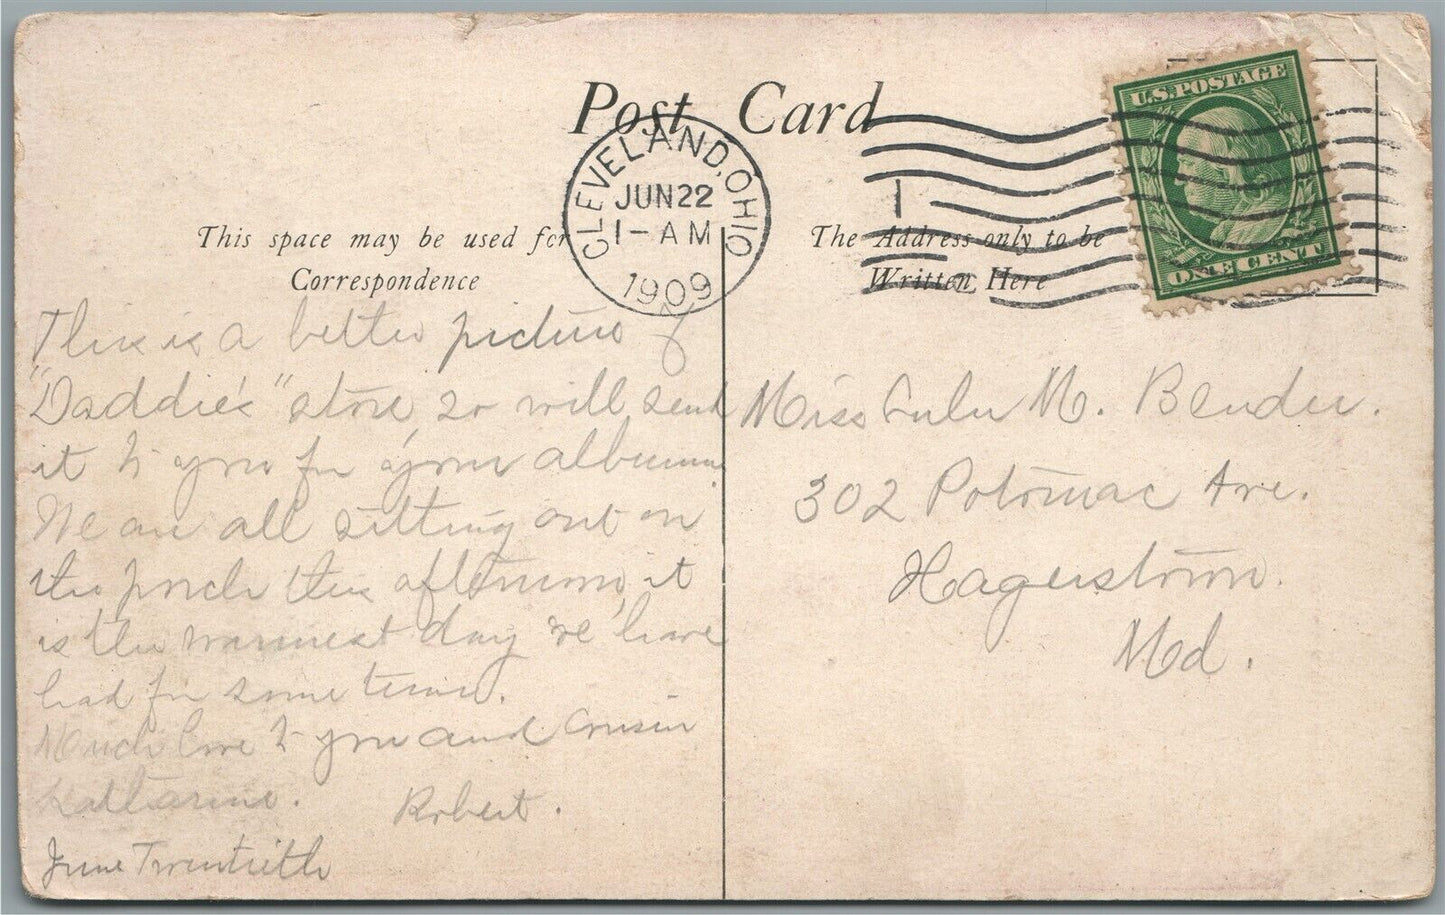 Post Card
CLEVELAND, OHIO
JUN 22
1-AM
1909
1
U.S. POSTAGE
ONE CENT
This space may be used for
Correspondence
The Address only to be
Written Here
This is a better picture of
"Daddie's" store, so will send
it to you for your album.
We are all sitting out on
the porch this afternoon, it
is the warmest day we have
had for some time.
Much love to you and Cousin
Katharine. Robert.
June Twentieth
Miss Lulu M. Bender.
302 Potomac Ave.
Hagerstown.
Md.